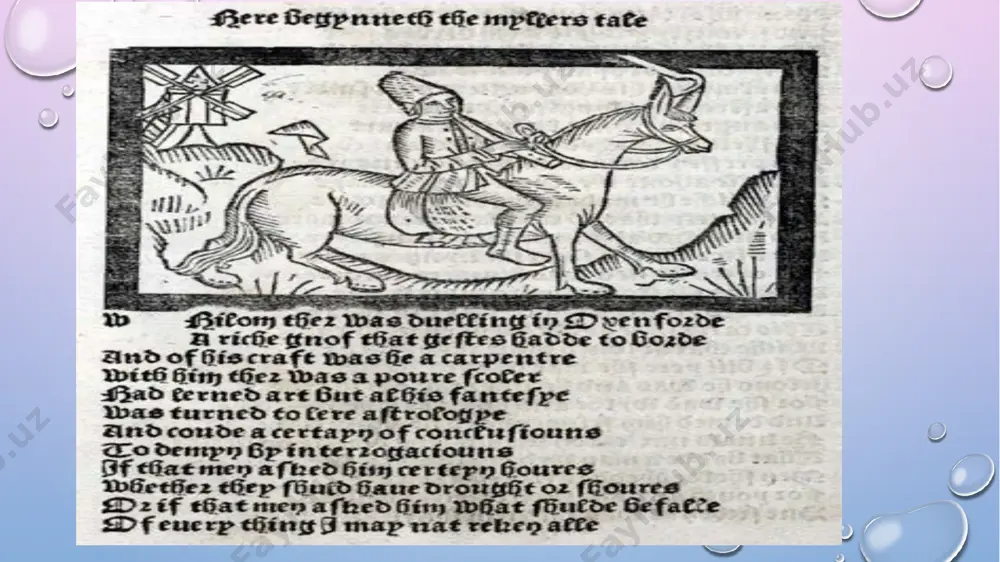 Here begynneth the myllers tale
w Hilom ther was duelling in Oxenforde
A riche gnof that gestes hadde to borde
And of his craft was he a carpentre
With him ther was a poure scoler
Had lerned art but al his fantesye
Was turned to lere astrologye
And coude a certayn of conclusiouns
To demyn by interrogaciouns
If that men asked him certeyn houres
Whether they shuld haue drought or shoures
Or if that men asked him what shulde befalle
Of euery thing I may nat reken alle
FayllHub.uz